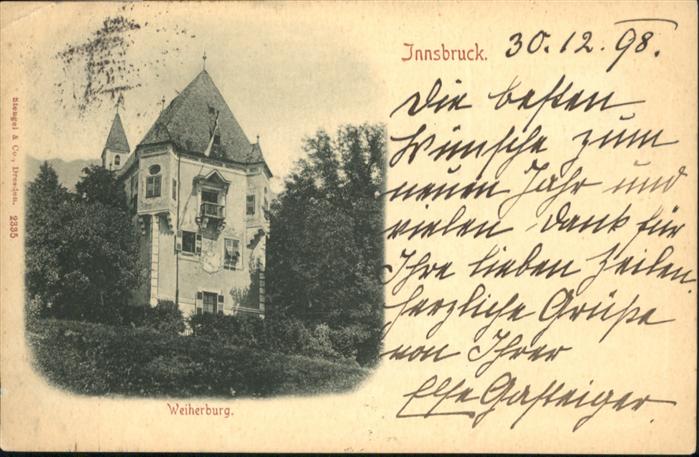 Innsbruck. 30. 12. 98.
Die besten
Wünsche zum
neuen Jahr und
vielen Dank für
Ihre lieben Zeilen
herzliche Grüße
von Ihrer
Else Gasteiger
Weiherburg.
Stengel & Co., Dresden. 2335